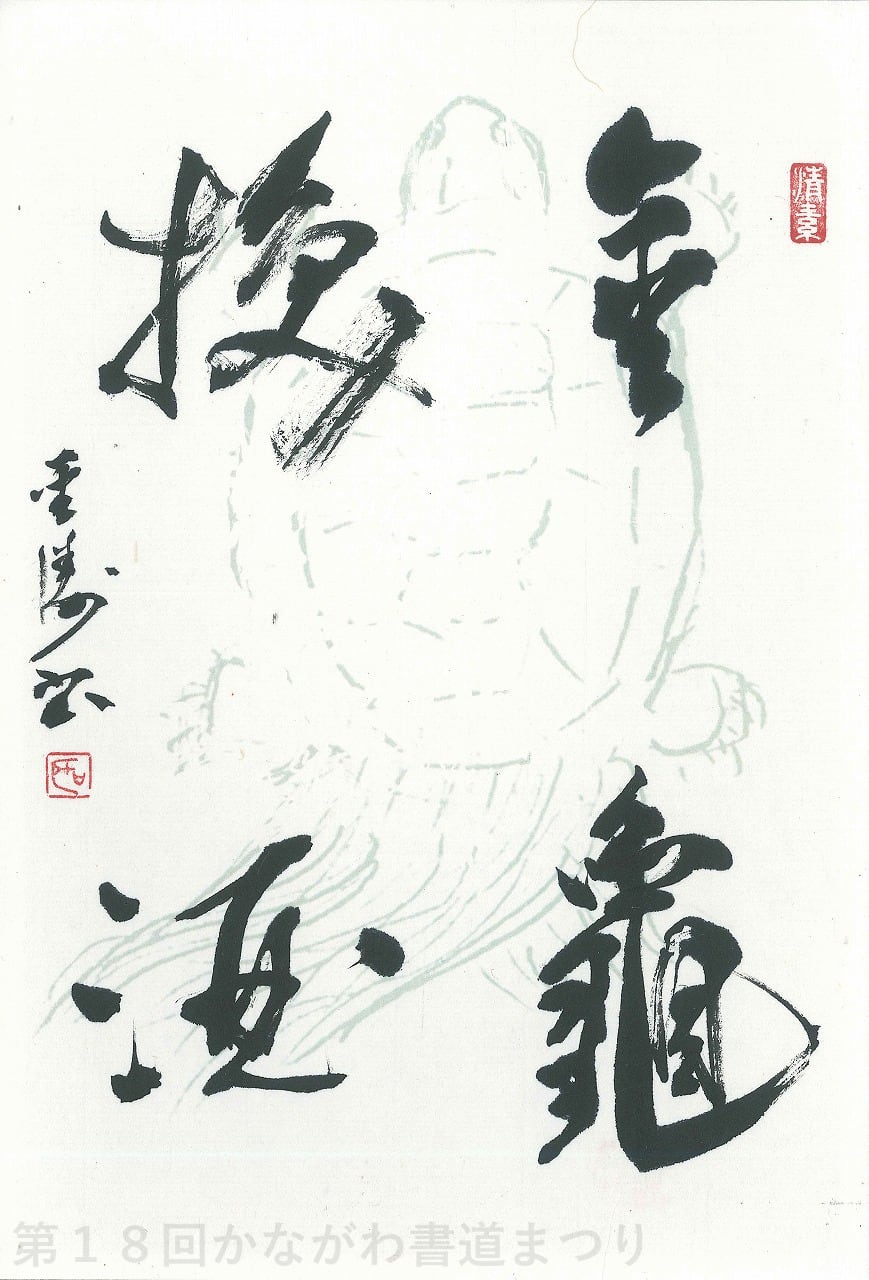 金龜
換酒
清素
第18回かながわ書道まつり